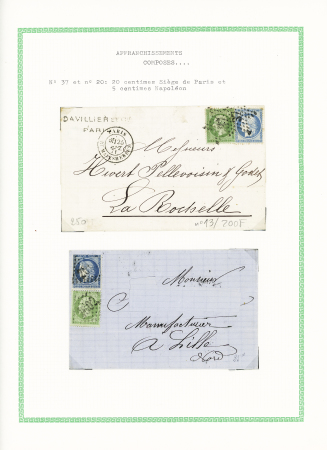 AFFRANCHISSEMENTS
COMPOSES....
N° 37 et n° 20: 20 centimes Siège de Paris et
5 centimes Napoléon
DAVILLIER
PARIS
PARIS
Messieurs
Hivert Pellevoisin &
La Rochelle
850
n° 13/ 200F
Monsieur
Manufacturier
A Lille
Nord